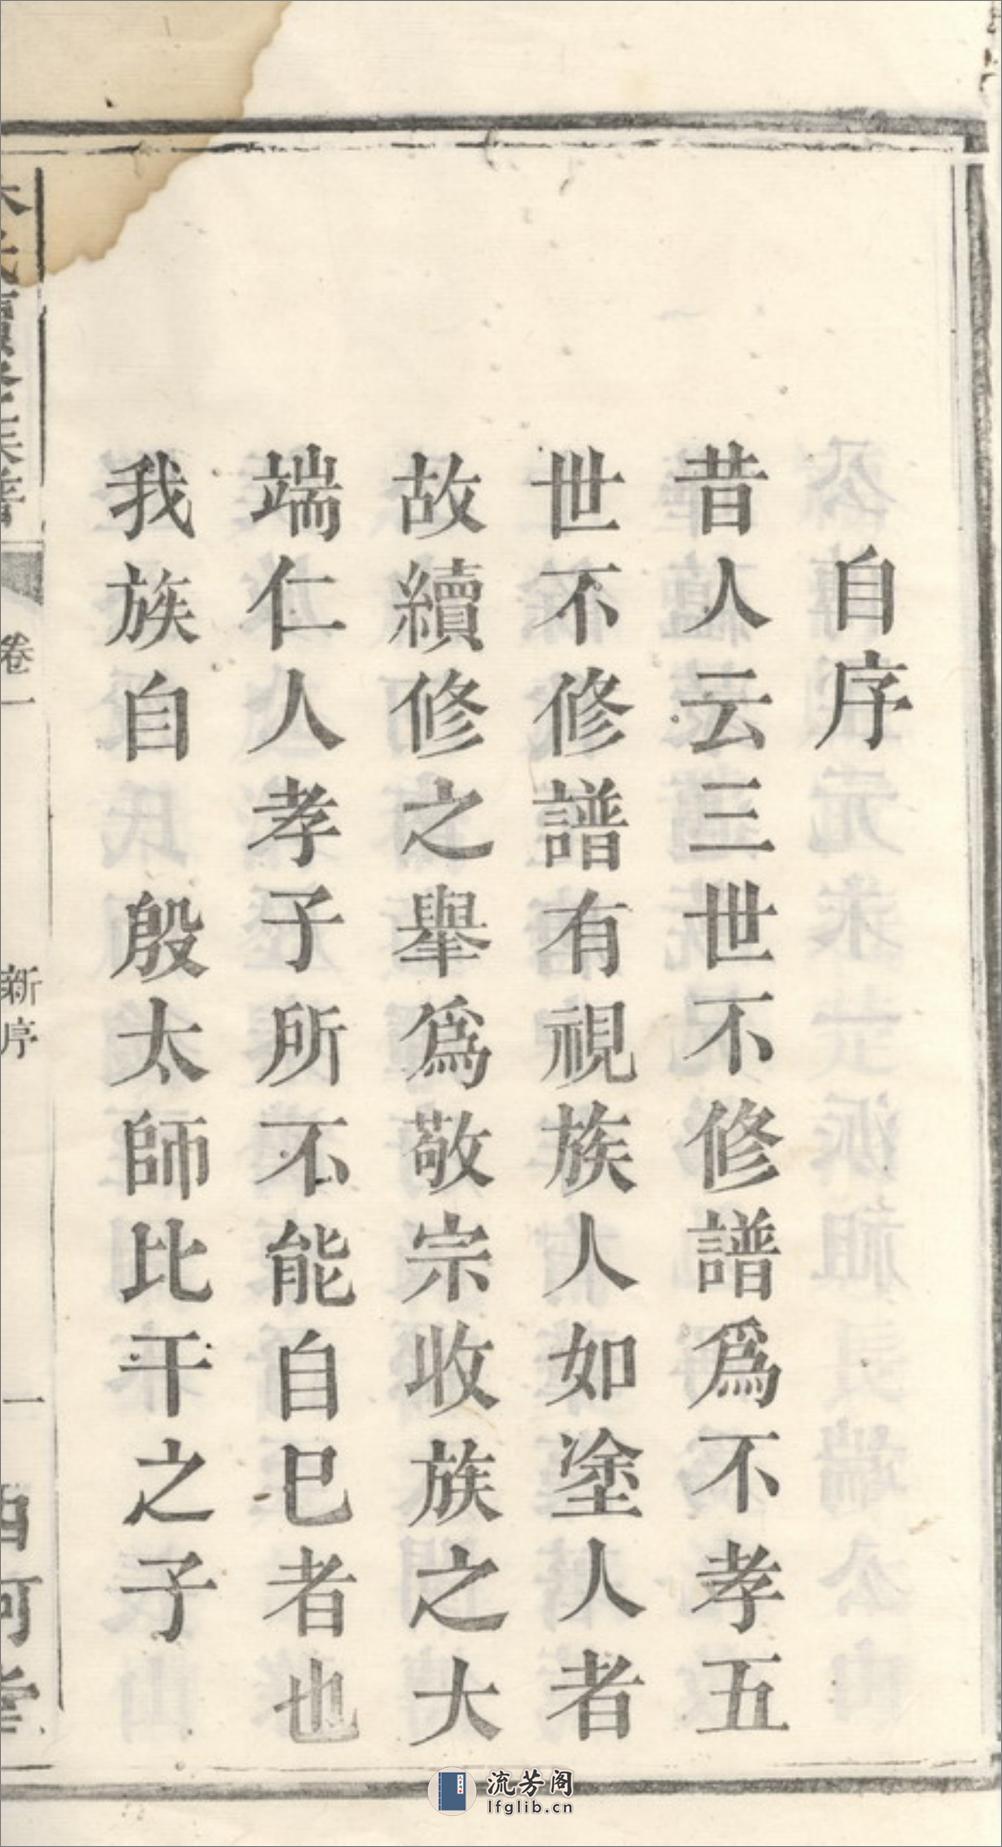 自序
昔人云三世不修譜爲不孝五
世不修譜有視族人如塗人者
故續修之舉爲敬宗收族之大
端仁人孝子所不能自巳者也
我族自 殷太師比干之子
卷一
新序
一
西河堂
流芳阁
lfglib.cn